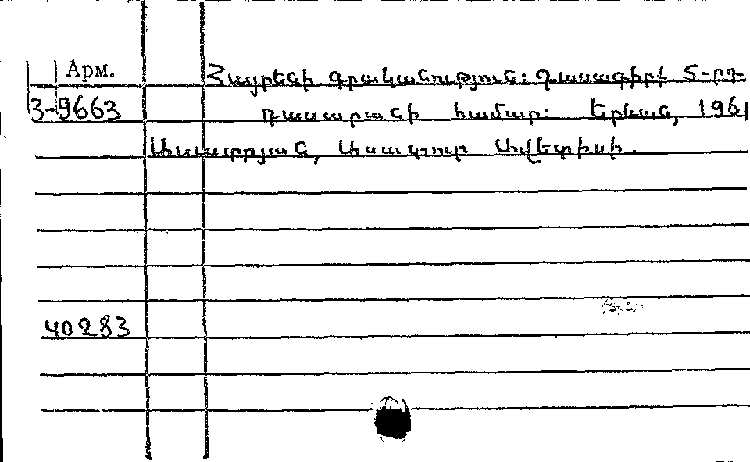 Арм. Հայրենի գրականություն: Դասագիրք 5-րդ
3-9663 դասարանի համար: Երևան, 1961
Ասատրյան, Ասատուր Ավետիսի.
40283